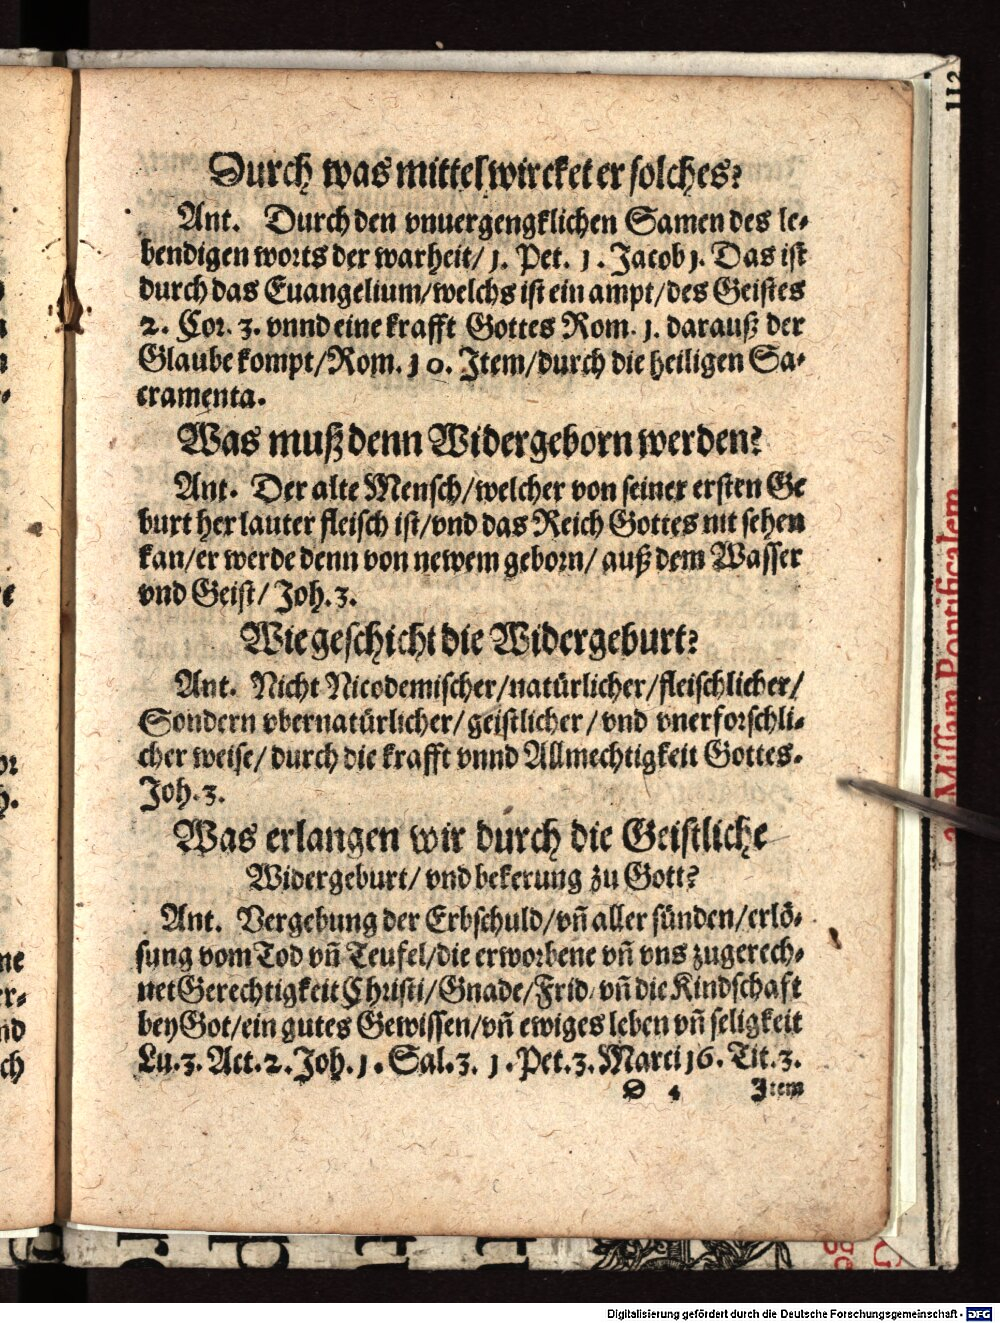 Durch was mittel wircket er solches?
Ant. Durch den vnuergengklichen Samen des le-
bendigen worts der warheit/ 1. Pet. 1. Jacob 1. Das ist
durch das Euangelium/welchs ist ein ampt/des Geistes
2. Cor. 3. vnnd eine krafft Gottes Rom. 1. darauß der
Glaube kompt/Rom. 10. Item/durch die heiligen Sa-
cramenta.
Was muß denn Widergeborn werden?
Ant. Der alte Mensch/welcher von seiner ersten Ge
burt her lauter fleisch ist/vnd das Reich Gottes nit sehen
kan/er werde denn von newem geborn/ auß dem Wasser
vnd Geist/ Joh. 3.
Wie geschicht die Widergeburt?
Ant. Nicht Nicodemischer/natürlicher/fleischlicher/
Sondern vbernatürlicher/ geistlicher/ vnd vnerforschli-
cher weise/ durch die krafft vnnd Allmechtigkeit Gottes.
Joh. 3.
Was erlangen wir durch die Geistliche
Widergeburt/ vnd bekerung zu Gott?
Ant. Vergebung der Erbschuld/vñ aller sünden/erlö-
sung vom Tod vñ Teufel/die erworbene vñ vns zugerech-
net Gerechtigkeit Christi/Gnade/Frid/ vñ die Kindschaft
bey Got/ein gutes Gewissen/vñ ewiges leben vñ seligkeit
Lu. 3. Act. 2. Joh. 1. Gal. 3. 1. Pet. 3. Marci 16. Tit. 3.
D 4 Item
112
Missam Pontificalem
Digitalisierung gefördert durch die Deutsche Forschungsgemeinschaft - DFG